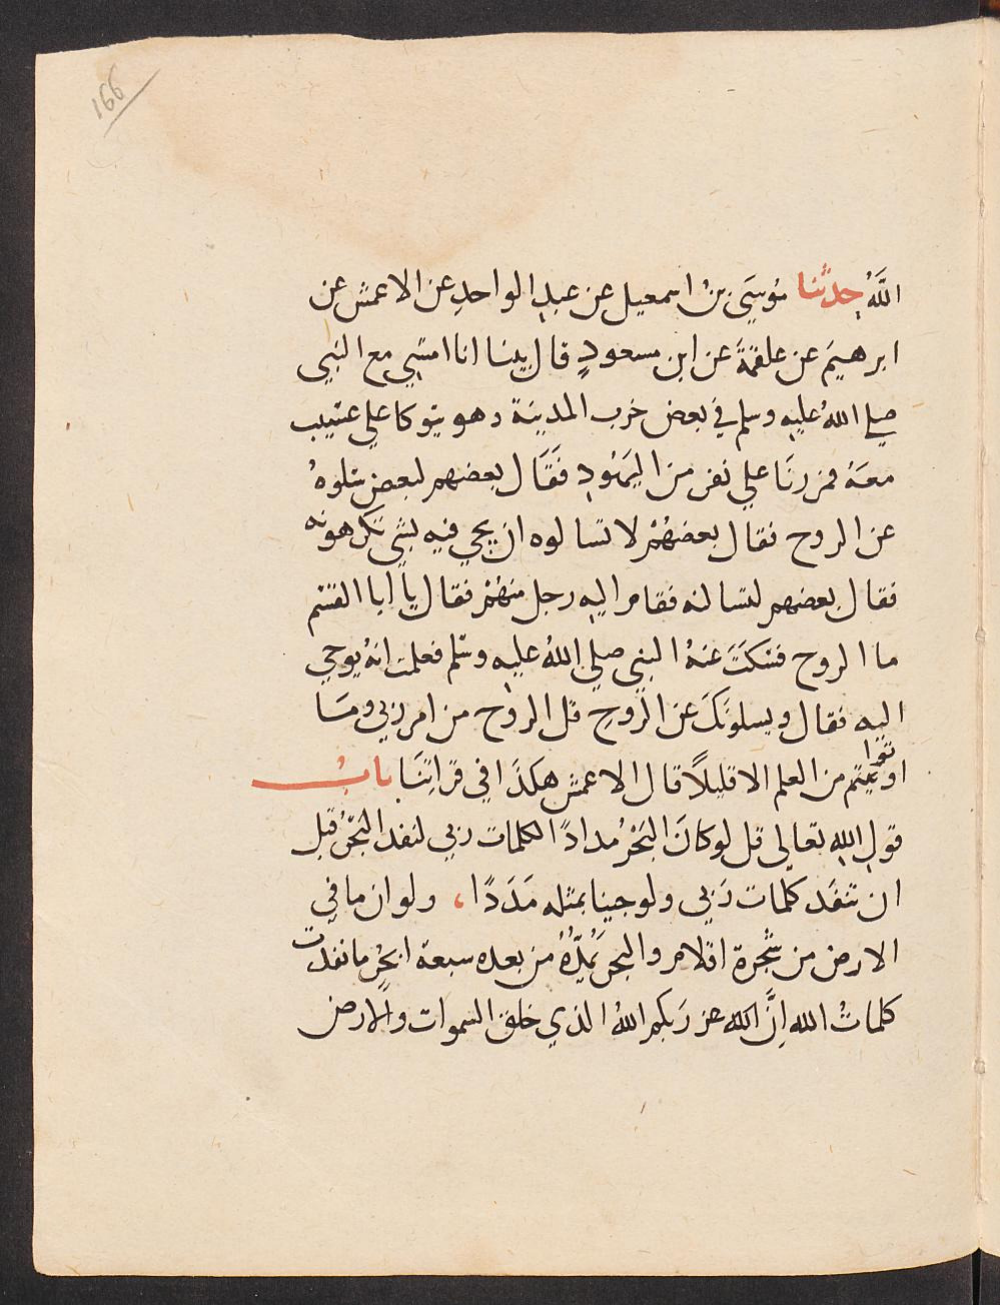 166
اللَّهُ حدثنا مُوسَى بنُ اسمعيل عن عبدِ الواحدِ عن الاعمش عن
ابرهيمَ عن علقمَةَ عن ابن مسعودٍ قال بينا انا امشي مع النبي
صلى اللهُ عليهِ وسلم في بعض خرب المدينة وهو يتوكا علي عسيب
معَهُ فمررنَا علي نفرٍ منَ اليَهُودِ فقَالَ بعضهم لبعض سَلوهُ
عن الروح فقال بعضهُمْ لا تسالوه ان يجي فيه بشي تكرهونه
فقال بعضهم لنسالنه فقام اليهِ رجل منهُمْ فقال يا ابا القسم
ما الروح فسَكَتَ عنهُ النبي صلي اللهُ عليهِ وسَلم فعلمت انهُ يوحي
اليهِ فقال ويسلونَكَ عن الروحِ قل الروح من امر ربي ومَا
اوتيتم من العلم الا قليلاً قال الاعمش هكذَا في قراتِنَا بابُ
توا
قولِ اللهِ تعالي قل لو كانَ البَحْرُ مدادًا لكلمات ربي لنفد البَحْرُ قبل
ان تنفَد كلمات رَبي ولو جينا بمثله مَدَدًا، ولو ان ما في
الارض من شجرة اقلام والبحر يَمُدُّهُ من بعده سبعة ابحُرٍ ما نفدت
كلماتُ الله اِنَّ الله عز رَبكم اللهُ الذي خلق السموات والارض